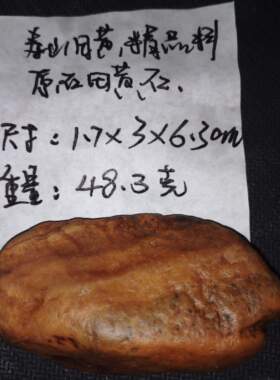 寿山田黄,精品料
原石田黄石、
尺寸:1.7×3×6.3cm
重量:48.3克